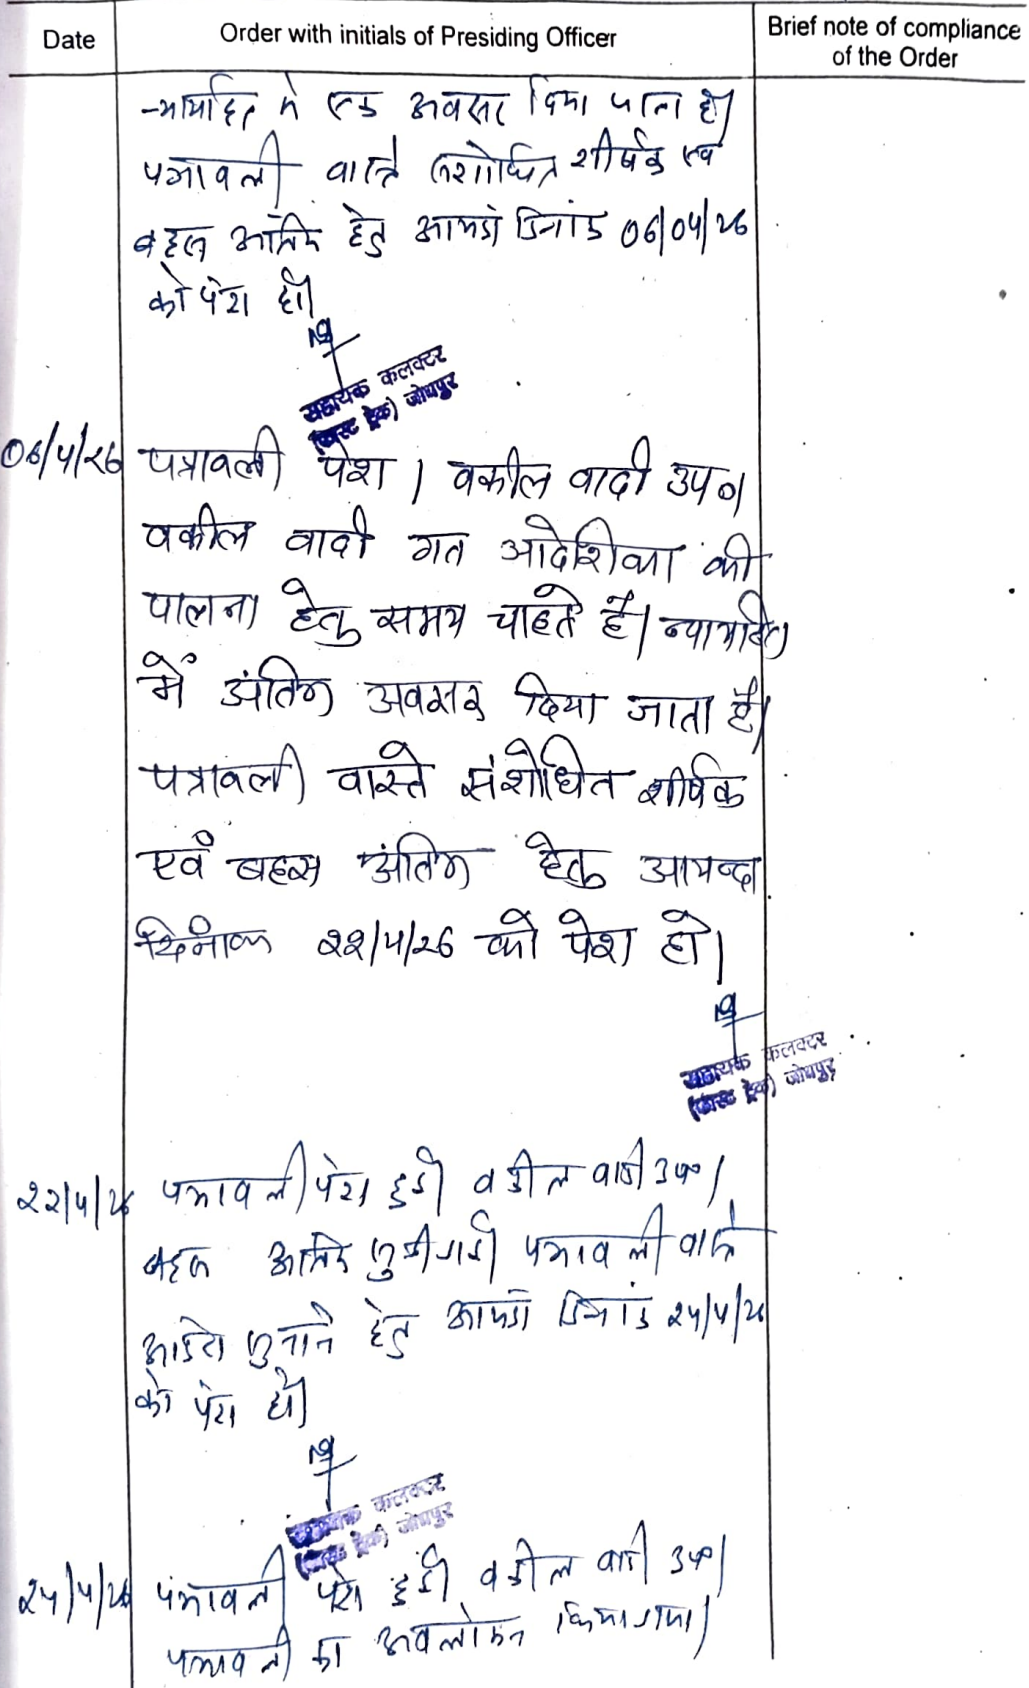 Date
Order with initials of Presiding Officer
Brief note of compliance
of the Order
न्यायहित मे एक अवसर दिया जाता है।
पत्रावली वास्ते संशोधित शीर्षक एवं
बहस अंतिम हेतु आयन्दा दिनांक 06/04/26
को पेश हो।
सहायक कलक्टर
(फास्ट ट्रेक) जोधपुर
06/4/26 पत्रावली पेश। वकील वादी उप०।
वकील वादी गत आदेशिका की
पालना हेतु समय चाहते है। न्यायहित
में अंतिम अवसर दिया जाता है।
पत्रावली वास्ते संशोधित शीर्षक
एवं बहस अंतिम हेतु आयन्दा
दिनांक 22/4/26 को पेश हो।
सहायक कलक्टर
(फास्ट ट्रेक) जोधपुर
22/4/26 पत्रावली पेश हुई। वकील वादी उप०।
बहस अंतिम सुनी गई। पत्रावली वास्ते
आदेश सुनाने हेतु आयन्दा दिनांक 24/4/26
को पेश हो।
सहायक कलक्टर
(फास्ट ट्रेक) जोधपुर
24/4/26 पत्रावली पेश हुई। वकील वादी उप०।
पत्रावली का अवलोकन किया गया।